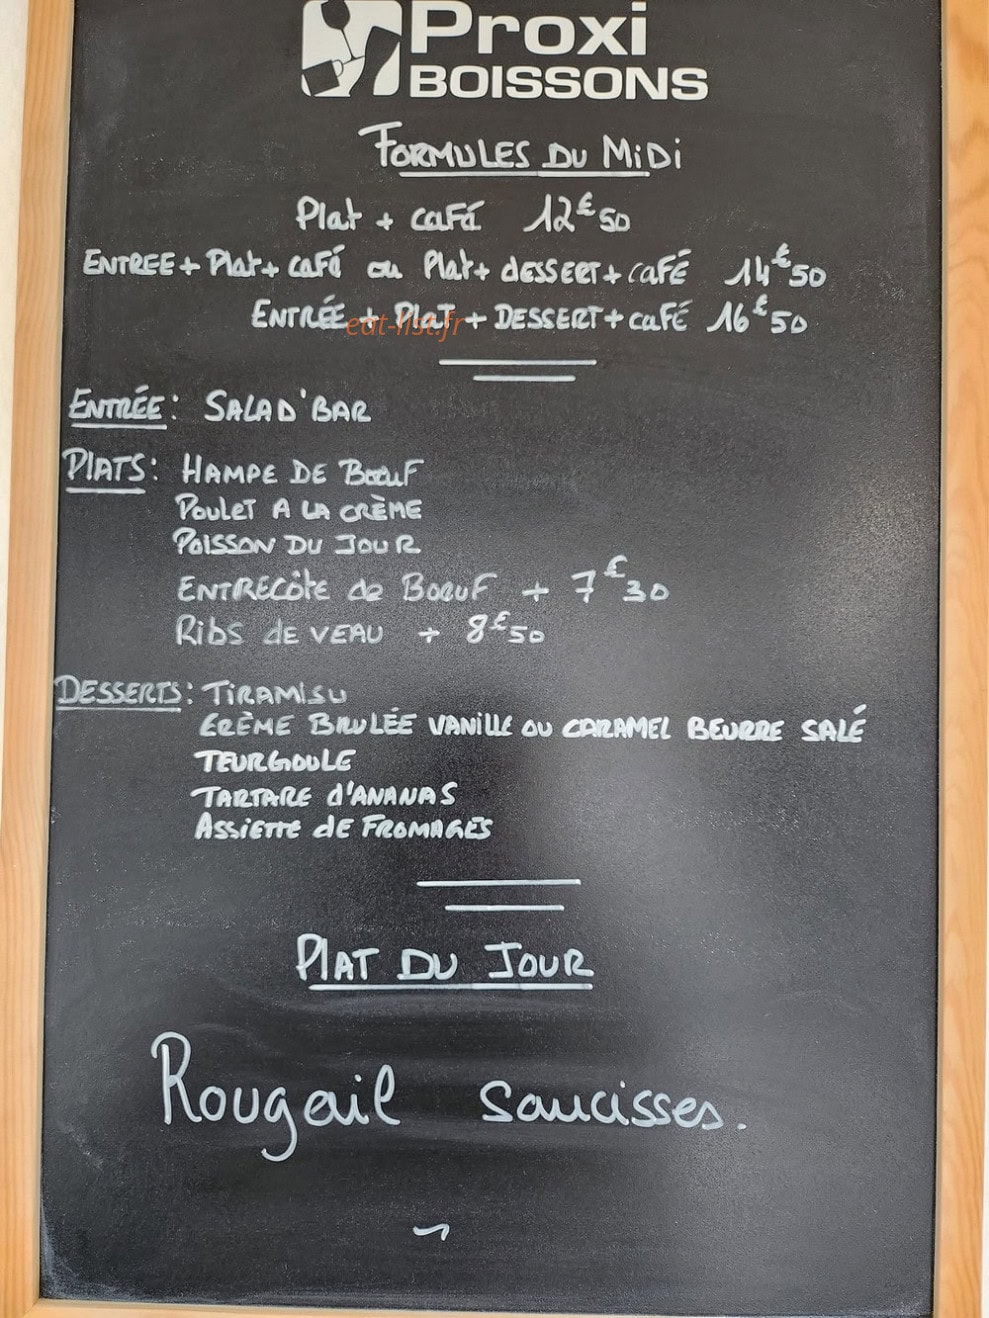 Proxi
BOISSONS
FORMULES DU MiDi
Plat + CaFé 12€50
ENTREE + Plat + CaFé ou Plat + dESSERt + CaFÉ 14€50
ENTRÉE + PLAT + DESSERT + CaFÉ 16€50
eat-list.fr
ENTRÉE : SALAD'BAR
PlATS : HAMPE DE BŒUF
POULET A LA CRÈME
POISSON DU JOUR
ENTRECÔtE de BOEUF + 7€30
Ribs dE VEAU + 8€50
DESSERTS : TiRAMiSU
CRÈME BRULÉE VANillE OU CARAMEL BEURRE SALÉ
TEURGOULE
TARTARE d'ANANAS
ASSiETTE dE FROMAGES
PlAT DU JOUR
Rougail saucisses.